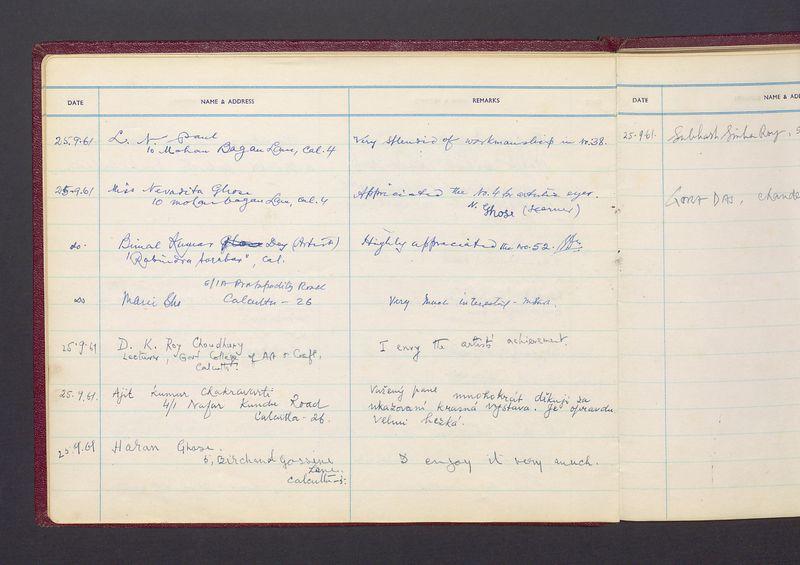 DATE NAME & ADDRESS REMARKS
25.9.61 L. N. Paul Very splendid of workmanship in no. 38.
10 Mohan Bagan Lane, Cal. 4
25.9.61 Miss Nevadita Ghose Appriciated the No. 4 for artistic eyes.
10 mohan bagan Lane, Cal. 4 N. Ghose (Learner)
do. Bimal Kumar Dey (Artist) Highly appreciated the no. 52.
"Rabindra Sarabar", Cal.
6/1A Protapaditya Road
do Calcutta - 26 Very much interesting -
25.9.61 D. K. Roy Choudhury I envy the artists' achievement.
Lecturer, Govt College of Art & Craft,
Calcutta.
25.9.61. Ajit Kumar Chakravarti Vážený pane mnohokrát děkuji za
4/1 Nafar Kundu Road ukazování krasná výstava. Je opravdu
Calcutta - 26. velmi hezká.
25.9.61 Haran Ghose. I enjoy it very much.
5, Birchand Gossain
Lane.
Calcutta-
DATE NAME & ADD
25.9.61. Subhash Sinha Roy, 5
DAS, Chande